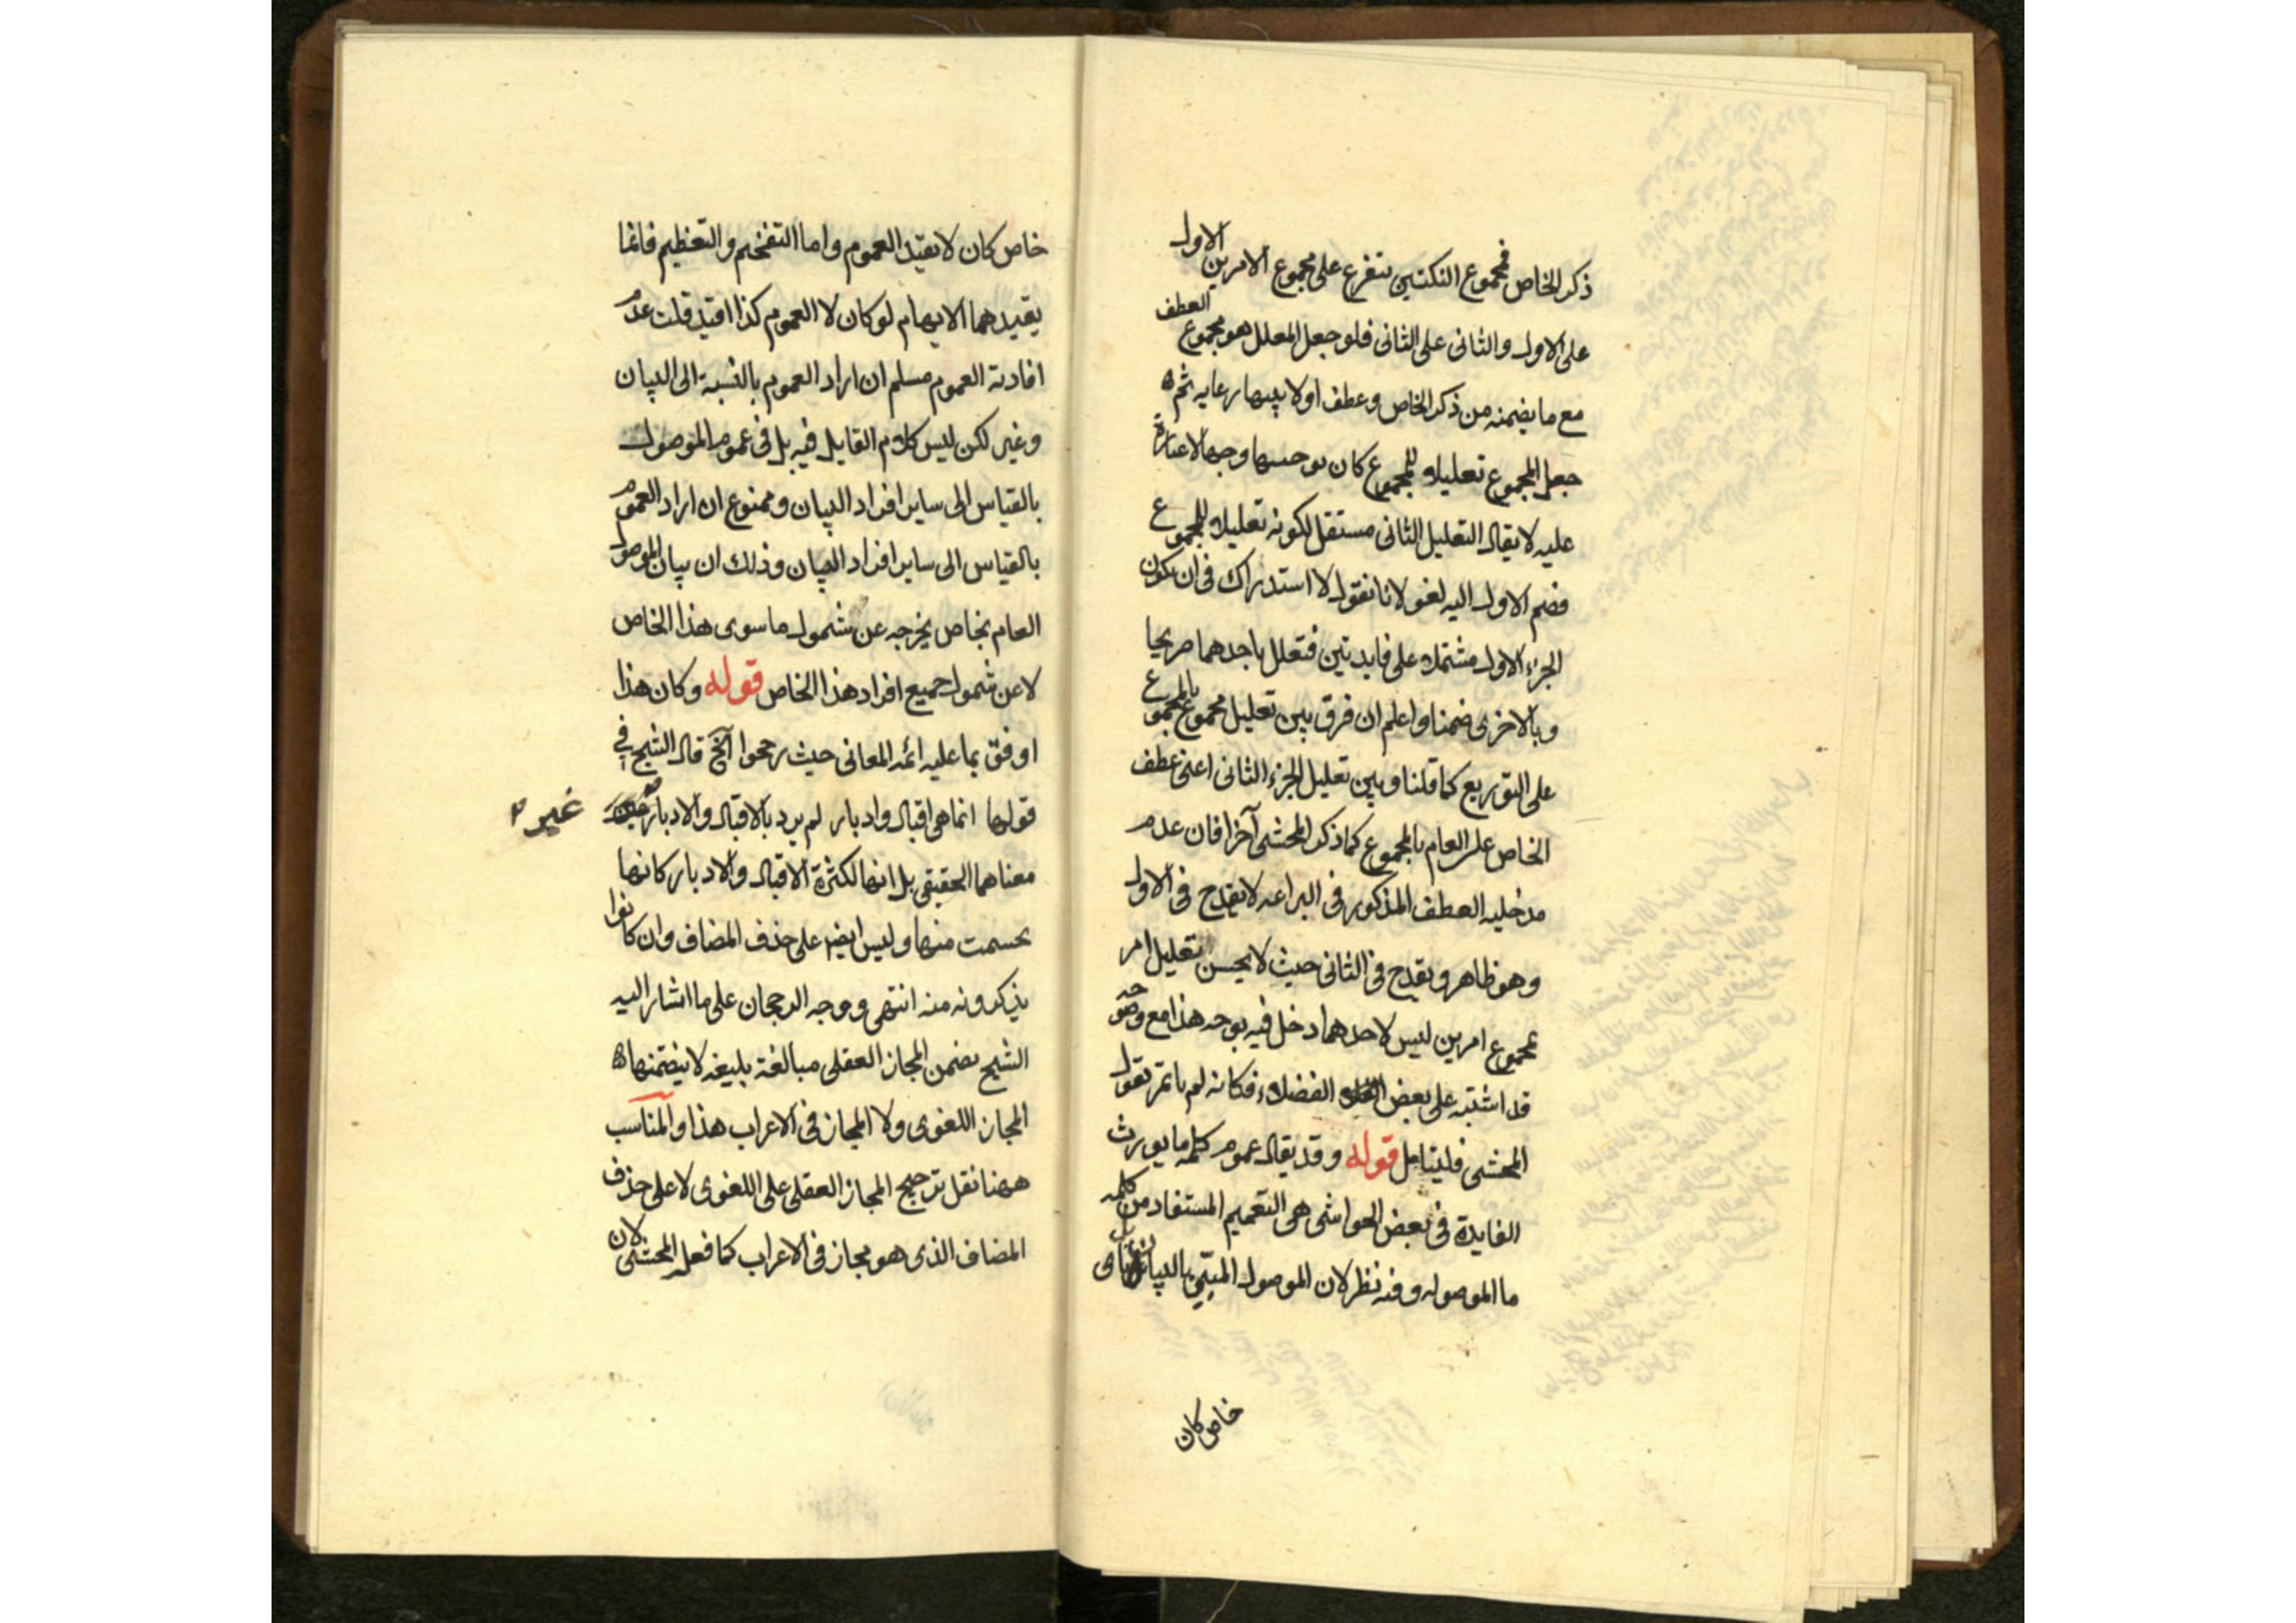 ذكر الخاص فمجموع النكتتين يتفرع على مجموع الامرين الاول
على الاول والثانى على الثانى فلو جعل المعلل هو مجموع العطف
مع ما يضمنه من ذكر الخاص وعطف اولا بينها رعايه ثم
جعل المجموع تعليلا للمجموع كان توجيها وجيها لا غبار
عليه لا يقال التعليل الثانى مستقل لكونه تعليلا للمجموع
فضم الاول اليه لغو لانا نقول لا استدراك فى ان يكون
الجزء الاول مشتملا على فايدتين فتعلل باحدهما صريحا
وبالاخرى ضمنا واعلم ان فرق بين تعليل مجموع بالمجموع
على التوزيع كما قلنا وبين تعليل الجزء الثانى اعنى عطف
الخاص على العام بالمجموع كما ذكر المحشى آخرا فان عدم
مدخليه العطف المذكور فى البراعه لا يقدح فى الاول
وهو ظاهر ويقدح فى الثانى حيث لا يحسن تعليل امر
بمجموع امرين ليس لاحدهما دخل فيه بوجه هذا مع وضوحه
قد اشتبه على بعض الفضلاء فكانه لم يات بقول
المحشى فليتامل قوله وقد يقال عموم كلمه ما يورث
الفايدة فى بعض الحواشى هى التعميم المستفاد من كلمه
ما الموصوله وفيه نظر لان الموصول المبين بالبيان باى
خاص كان
خاص كان لا يفيد العموم واما التفخيم والتعظيم فانما
يفيدهما الابهام لو كان لا العموم كذا افيد قلت عدم
افادته العموم مسلم ان اراد العموم بالنسبة الى البيان
وغير لكن ليس كلام القايل فيه بل فى عموم الموصول
بالقياس الى ساير افراد البيان وممنوع ان اراد العموم
بالقياس الى ساير افراد البيان وذلك ان بيان الموصول
العام بخاص يخرجه عن شمول ما سوى هذا الخاص
لا عن شمول جميع افراد هذا الخاص قوله وكان هذا
اوفق بما عليه ائمه المعانى حيث رجحوا آلخ قال الشيخ فى
قولها انما هى اقبال وادبار لم يرد بالاقبال والادبار
غير
معناهما الحقيقى بل انها لكثرة الاقبال والادبار كانها
تجسمت منها وليس ايضا على حذف المضاف وان كانوا
يذكرونه منه انتهى ووجه الرجحان على ما اشار اليه
الشيخ تضمن المجاز العقلى مبالغة بليغه لا يتضمنها
المجاز اللغوى ولا المجاز فى الاعراب هذا والمناسب
ههنا نقل ترجيح المجاز العقلى على اللغوى لا على حذف
المضاف الذى هو مجاز فى الاعراب كما فعله المحشى لان